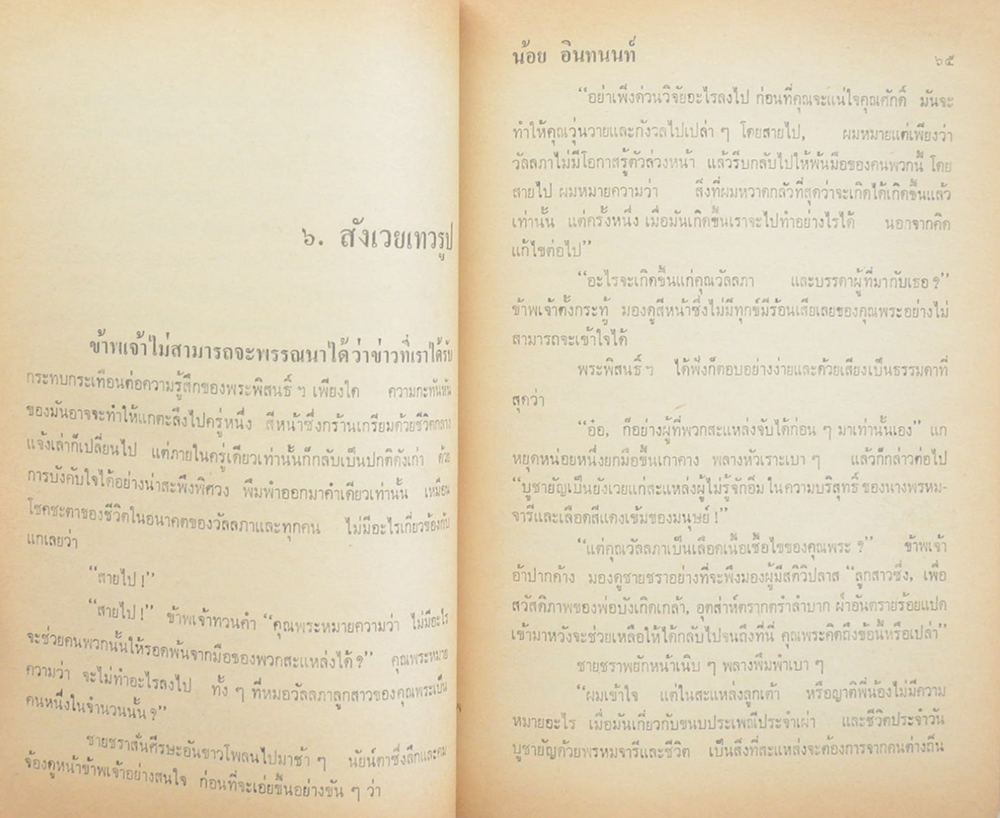 ๖. สังเวยเทวรูป
ข้าพเจ้าไม่สามารถจะพรรณนาได้ว่าข่าวที่เราได้รับ
กระทบกระเทือนต่อความรู้สึกของพระพิสนธิ์ ฯ เพียงใด ความกะทันหัน
ของมันอาจจะทำให้แกตะลึงไปครู่หนึ่ง สีหน้าซึ่งกร้านเกรียมด้วยชีวิตกลาง
แจ้งเล่าก็เปลี่ยนไป แต่ภายในครู่เดียวเท่านั้นก็กลับเป็นปกติดังเก่า ด้วย
การบังคับใจได้อย่างน่าสะพึงพิศวง พึมพำออกมาคำเดียวเท่านั้น เหมือน
โชคชะตาของชีวิตในอนาคตของวัลลภาและทุกคน ไม่มีอะไรเกี่ยวข้องกับ
แกเลยว่า
“สายไป !”
“สายไป !” ข้าพเจ้าทวนคำ “คุณพระหมายความว่า ไม่มีอะไร
จะช่วยคนพวกนั้นให้รอดพ้นจากมือของพวกสะแหล่งได้ ?” คุณพระหมาย
ความว่า จะไม่ทำอะไรลงไป ทั้ง ๆ ที่หมอวัลลภาลูกสาวของคุณพระเป็น
คนหนึ่งในจำนวนนั้น ?”
ชายชราสั่นศีรษะอันขาวโพลนไปมาช้า ๆ นัยน์ตาซึ่งลึกและคม
จ้องดูหน้าข้าพเจ้าอย่างสนใจ ก่อนที่จะเอ่ยขึ้นอย่างขัน ๆ ว่า
น้อย อินทนนท์
๖๕
“อย่าเพิ่งด่วนวิจัยอะไรลงไป ก่อนที่คุณจะแน่ใจคุณศักดิ์ มันจะ
ทำให้คุณวุ่นวายและกังวลไปเปล่า ๆ โดยสายไป, ผมหมายแต่เพียงว่า
วัลลภาไม่มีโอกาสรู้ตัวล่วงหน้า แล้วรีบกลับไปให้พ้นมือของคนพวกนี้ โดย
สายไป ผมหมายความว่า สิ่งที่ผมหวาดกลัวที่สุดว่าจะเกิดได้เกิดขึ้นแล้ว
เท่านั้น แต่ครั้งหนึ่ง เมื่อมันเกิดขึ้นเราจะไปทำอย่างไรได้ นอกจากคิด
แก้ไขต่อไป”
“อะไรจะเกิดขึ้นแก่คุณวัลลภา และบรรดาผู้ที่มากับเธอ ?”
ข้าพเจ้าตั้งกระทู้ มองดูสีหน้าซึ่งไม่มีทุกข์มีร้อนเสียเลยของคุณพระอย่างไม่
สามารถจะเข้าใจได้
พระพิสนธิ์ ฯ ได้ฟังก็ตอบอย่างง่ายและด้วยเสียงเป็นธรรมดาที่
สุดว่า
“อ๋อ, ก็อย่างผู้ที่พวกสะแหล่งจับได้ก่อน ๆ มาเท่านั้นเอง” แก
หยุดหน่อยหนึ่งยกมือขึ้นเกาคาง พลางหัวเราะเบา ๆ แล้วก็กล่าวต่อไป
“บูชายัญเป็นยังเวยแก่สะแหล่งผู้ไม่รู้จักอิ่ม ในความบริสุทธิ์ ของนางพรหม-
จารีและเลือดสีแดงเข้มของมนุษย์ !”
“แต่คุณวัลลภาเป็นเลือดเนื้อเชื้อไขของคุณพระ ?” ข้าพเจ้า
อ้าปากค้าง มองดูชายชราอย่างที่จะพึงมองผู้มีสติวิปลาส “ลูกสาวซึ่ง, เพื่อ
สวัสดิภาพของพ่อบังเกิดเกล้า, อุตส่าห์ตรากตรำลำบาก ฝ่าอันตรายร้อยแปด
เข้ามาหวังจะช่วยเหลือให้ได้กลับไปจนถึงที่นี่ คุณพระคิดถึงข้อนี้หรือเปล่า”
ชายชราพยักหน้าเนิบ ๆ พลางพึมพำเบา ๆ
“ผมเข้าใจ แต่ในสะแหล่งลูกเต้า หรือญาติพี่น้องไม่มีความ
หมายอะไร เมื่อมันเกี่ยวกับขนบประเพณีประจำเผ่า และชีวิตประจำวัน
บูชายัญด้วยพรหมจารีและชีวิต เป็นสิ่งที่สะแหล่งจะต้องการจากคนต่างถิ่น